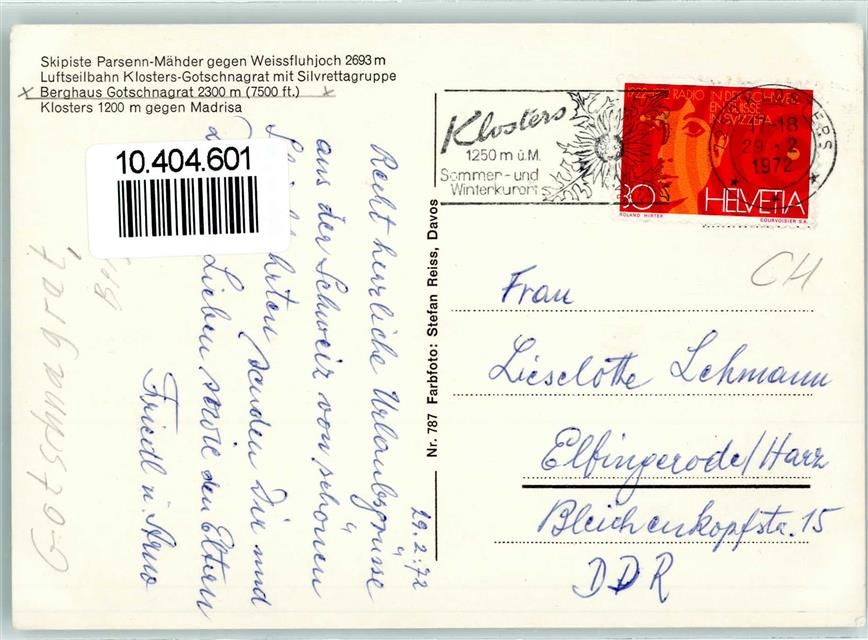 Skipiste Parsenn-Mähder gegen Weissfluhjoch 2693 m
Luftseilbahn Klosters-Gotschnagrat mit Silvrettagruppe
Berghaus Gotschnagrat 2300 m (7500 ft.)
Klosters 1200 m gegen Madrisa
10.404.601
29.2.72
Recht herrliche Urlaubsgrüsse
aus der Schweiz von schönen
senden Dir und
Lieben sowie den Eltern
Friedl u. Arno
Gotschnagrat
Nr. 787 Farbfoto: Stefan Reiss, Davos
Klosters
1250 m ü.M.
Sommer- und
Winterkurort
RADIO IN DER SCHWEIZ
EN SUISSE
IN SVIZZERA
80
HELVETIA
ROLAND HIRTER
COURVOISIER S.A.
-18
1972
CH
Frau
Lieselotte Lehmann
Elfingerode/Harz
Bleichenkopfstr. 15
DDR